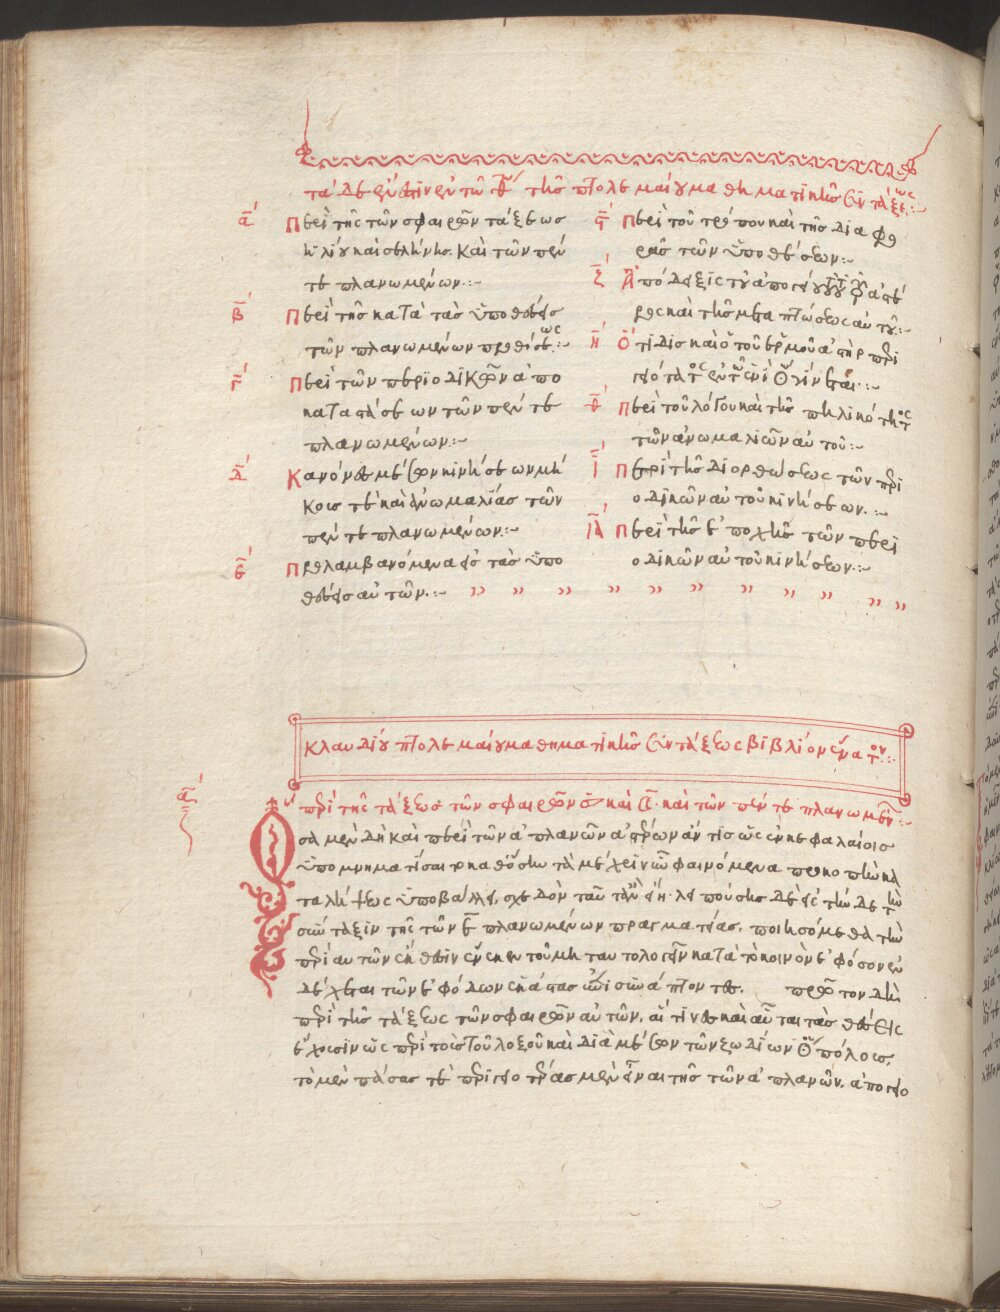 τάδε ἔνεστιν ἐν τῷ θ΄ τῆς πτολεμαίου μαθηματικῆς συντάξεως:~
α΄ Περὶ τῆς τῶν σφαιρῶν τάξεως
ἡλίου καὶ σελήνης καὶ τῶν πέντε
τε πλανωμένων:~
β΄ Περὶ τῆς κατὰ τὰς ὑποθέσεις
τῶν πλανωμένων προθέσεως:~
γ΄ Περὶ τῶν περιοδικῶν ἀπο
καταστάσεων τῶν πέντε
πλανωμένων:~
δ΄ Κανόνες μέσων κινήσεων μή
κους τε καὶ ἀνωμαλίας τῶν
πέντε πλανωμένων:~
ε΄ Προλαμβανόμενα εἰς τὰς ὑπο
θέσεις αὐτῶν:~
ϛ΄ Περὶ τοῦ τρόπου καὶ τῆς διαφο
ρᾶς τῶν ὑποθέσεων:~
ζ΄ Ἀπόδειξις τοῦ ἀπογείου τοῦ τοῦ ἑρμοῦ ἀστέ
ρος καὶ τῆς μεταπτώσεως αὐτοῦ:~
η΄ Ὅτι δὶς καὶ ὁ τοῦ ἑρμοῦ ἀστὴρ περι
γειότατος ἐν τῇ ἑνὶ κύκλῳ γίνεται:~
θ΄ Περὶ τοῦ λόγου καὶ τῆς πηλικότητος
τῶν ἀνωμαλιῶν αὐτοῦ:~
ι΄ Περὶ τῆς διορθώσεως τῶν περι
οδικῶν αὐτοῦ κινήσεων:~
ια΄ Περὶ τῆς ἐποχῆς τῶν περι
οδικῶν αὐτοῦ κινήσεων:~
κλαυδίου πτολεμαίου μαθηματικῆς συντάξεως βιβλίον ἔνατον:~
α΄ περὶ τῆς τάξεως τῶν σφαιρῶν ☉ καὶ ☾ καὶ τῶν πέντε πλανωμένων:~
Ὅσα μὲν δὴ καὶ περὶ τῶν ἀπλανῶν ἀστέρων ἄν τις ὡς ἐν κεφαλαίοις
ὑπομνηματίσαιτο καθ᾽ ὅσον τὰ μέχρι νῦν φαινόμενα προκοπὴν κα
ταλήψεως ὑποβάλλει, σχεδὸν ταῦτα ἂν εἴη. λειπούσης δὲ εἰς τήνδε τὴν
σύνταξιν τῆς τῶν ε΄ πλανωμένων πραγματείας, ποιησόμεθα τὴν
περὶ αὐτῶν ἔκθεσιν ἕνεκεν τοῦ μὴ ταυτολογεῖν κατὰ τὸ κοινὸν ἐφ᾽ ὅσον ἐν
δέχεται τῶν ἐφόδων ἑκάστας ἐπισυνάπτοντες. πρῶτον δὴ
περὶ τῆς τάξεως τῶν σφαιρῶν αὐτῶν, αἵτινες καὶ αὗται τὰς θέσεις
ἔχουσιν ὡς περὶ τοὺς τοῦ λοξοῦ καὶ διὰ μέσων τῶν ζωδίων κύκλου πόλους,
τὸ μὲν πάσας τε περιγειοτέρας μὲν εἶναι τῆς τῶν ἀπλανῶν, ἀπογειο